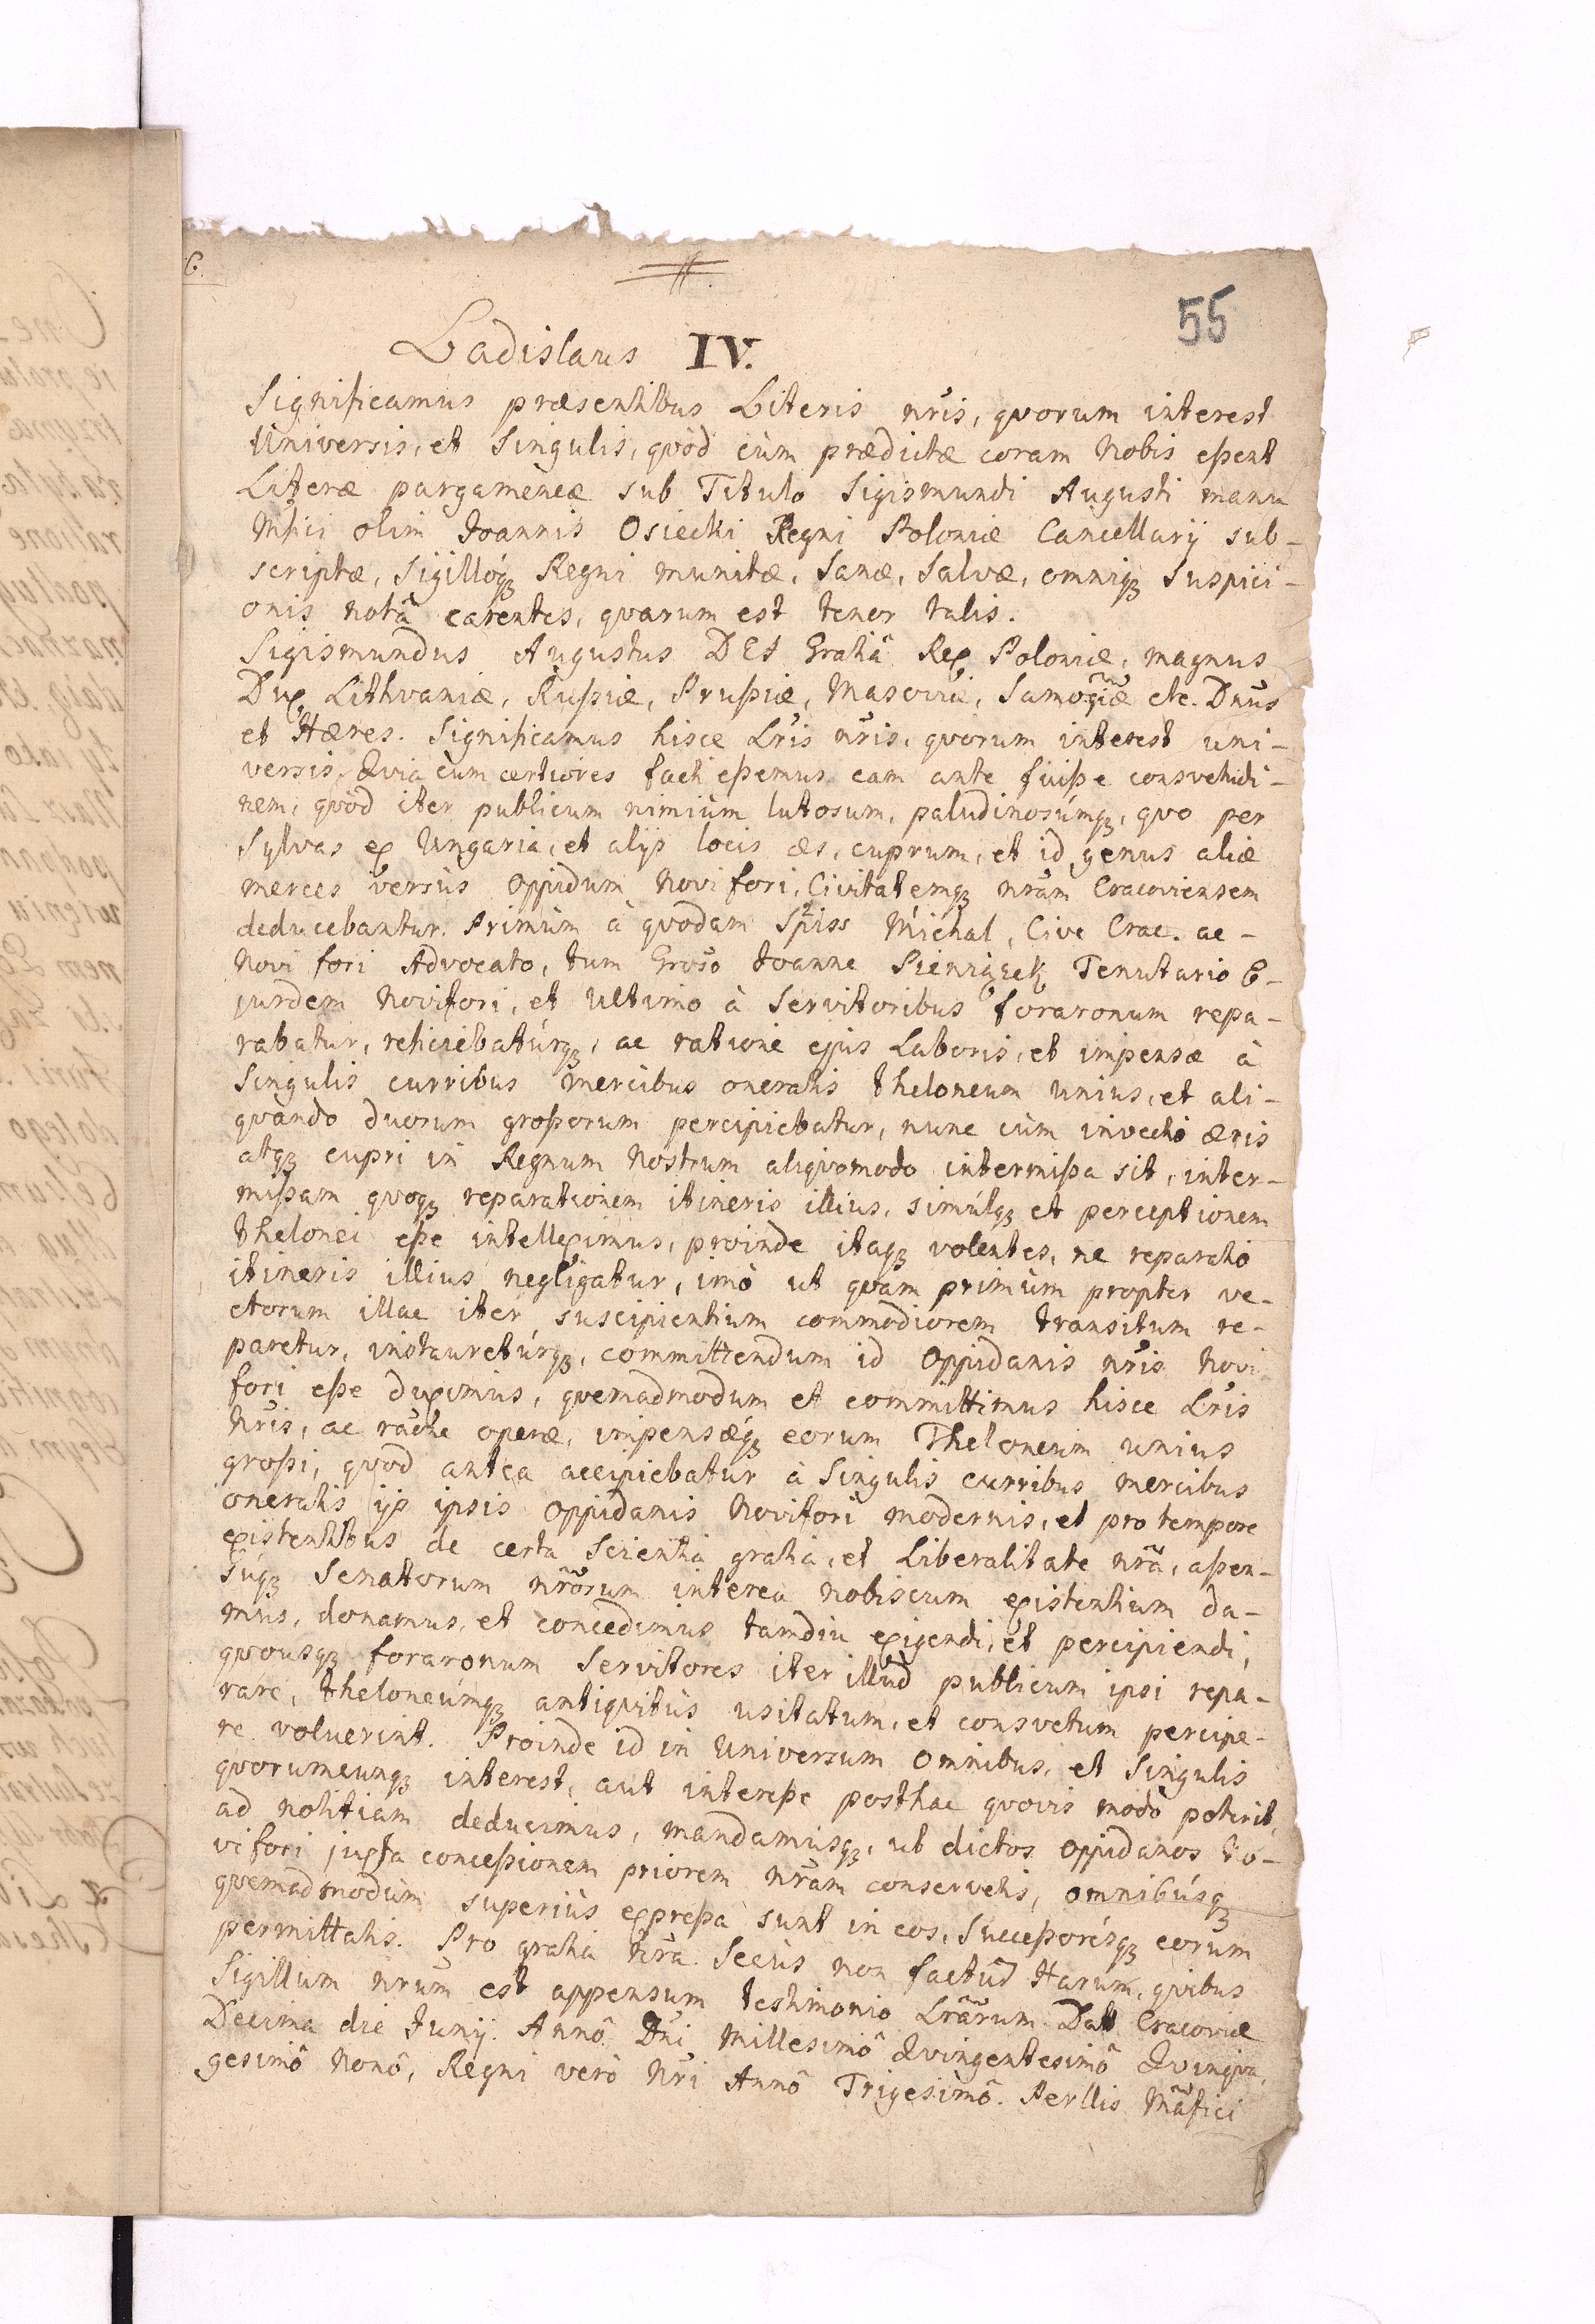 6.
55
Ladislaus IV.
Significamus præsentibus Literis nris, quorum interest
Universis, et Singulis, quòd cùm prædictæ coram Nobis eßent
Literæ pargameneæ sub Titulo Sigismundi Augusti manu
Mfici olim Joannis Osiecki Regni Poloniæ Cancellarij sub-
scriptæ, Sigillóq3 Regni munitæ, Sanæ, Salvæ, omniq3 Suspici-
onis notâ carentes, quarum est tenor talis.
Sigismundus Augustus DEI Gratiâ Rex Poloniæ, magnus
Dux Lithvaniæ, Rußiæ, Prußiæ, Masoviæ, Samogiæ etc. Dnus
et Hæres. Significamus hisce Lris nris, quorum interest uni-
versis, Qvia cùm certiores facti eßemus eam ante fuiße consvetudi-
nem, quòd iter publicum nimiùm lutosum, paludinosúmq3, quo per
Sylvas ex Ungaria, et alijs locis æs, cuprum, et id genus aliæ
merces versùs Oppidum Novi fori, Civitatemq3 nram Cracoviensem
deducebantur. Primùm à quodam Spiss Michal, Cive Crac. ac-
Novi fori Advocato, tum Groso Joanne Pieniążek Tenutario E-
jusdem Novifori, et Ultimo à Servitoribus foraronum repa-
rabatur, reficiebatúrq3, ac ratione ejus Laboris, et impensæ à
Singulis curribus mercibus oneratis theloneum unius, et ali-
quando duorum großorum percipiebatur, nunc cùm invectio æris
atq3 cupri in Regnum Nostrum aliquomodo intermißa sit, inter-
mißam quoq3 reparationem itineris illius, simúlq3 et perceptionem
thelonei eße intelleximus, proinde itaq3 volentes, ne reparatio
itineris illius negligatur, imò ut quam primùm propter ve-
ctorum illac iter suscipientium commodiorem transitum re-
paretur, instauretúrq3, committendum id Oppidanis nris Novi
fori eße duximus, quemadmodum et committimus hisce Lris
Nris, ac raõne operæ, impensæq3 eorum Theloneum unius
großi, quod antea accipiebatur à Singulis curribus mercibus
oneratis ijs ipsis Oppidanis Novifori modernis, et pro tempore
existentibus de certa Scientia gratia, et Liberalitate nrã, aßen-
súq3 Senatorum nrorum interea nobiscum existentium da-
mus, donamus, et concedimus tamdiu exigendi, et percipiendi,
quousq3 foraronum Servitores iter illud publicum ipsi repa-
rare, theloneúmq3 antiquitùs usitatum, et consvetum percipe-
re voluerint. Proinde id in Universum Omnibus, et Singulis
quorumcunq3 interest, aut intereße posthac quovis modò poterit,
ad notitiam deducimus, mandamúsq3, ut dictos Oppidanos No-
vifori juxta conceßionem priorem nram conservetis, omnibúsq3
quemadmodum superiùs expreßa sunt in eos, Succeßorésq3 eorum
permittatis. Pro gratia nra. Secùs non factur̃ Harum, quibus
Sigillum nrum est appensum testimonio Lrarum. Datt Cracoviæ
Decima die Junij. Annô Dni Millesimô Qvingentesimô Qvinqva-
gesimô Nonô, Regni verò Nri Annô Trigesimô. Perllis Mãfici